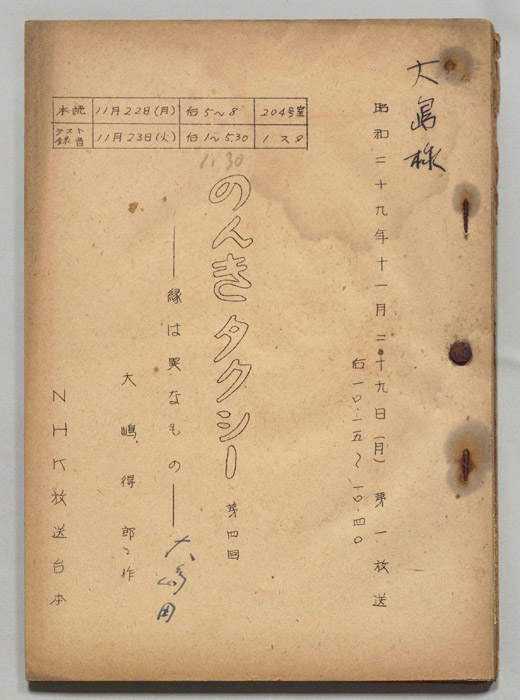 大島様
昭和二十九年十一月二十九日(月) 第一放送
后一〇.一五〜一〇.四〇
本読 11月22日(月) 后5〜8 204号室
テスト録音 11月23日(火) 后1〜5.30 1スタ
11.30
のんきタクシー 第四回
――縁は異なもの――
大嶋得郎 作
NHK放送台本